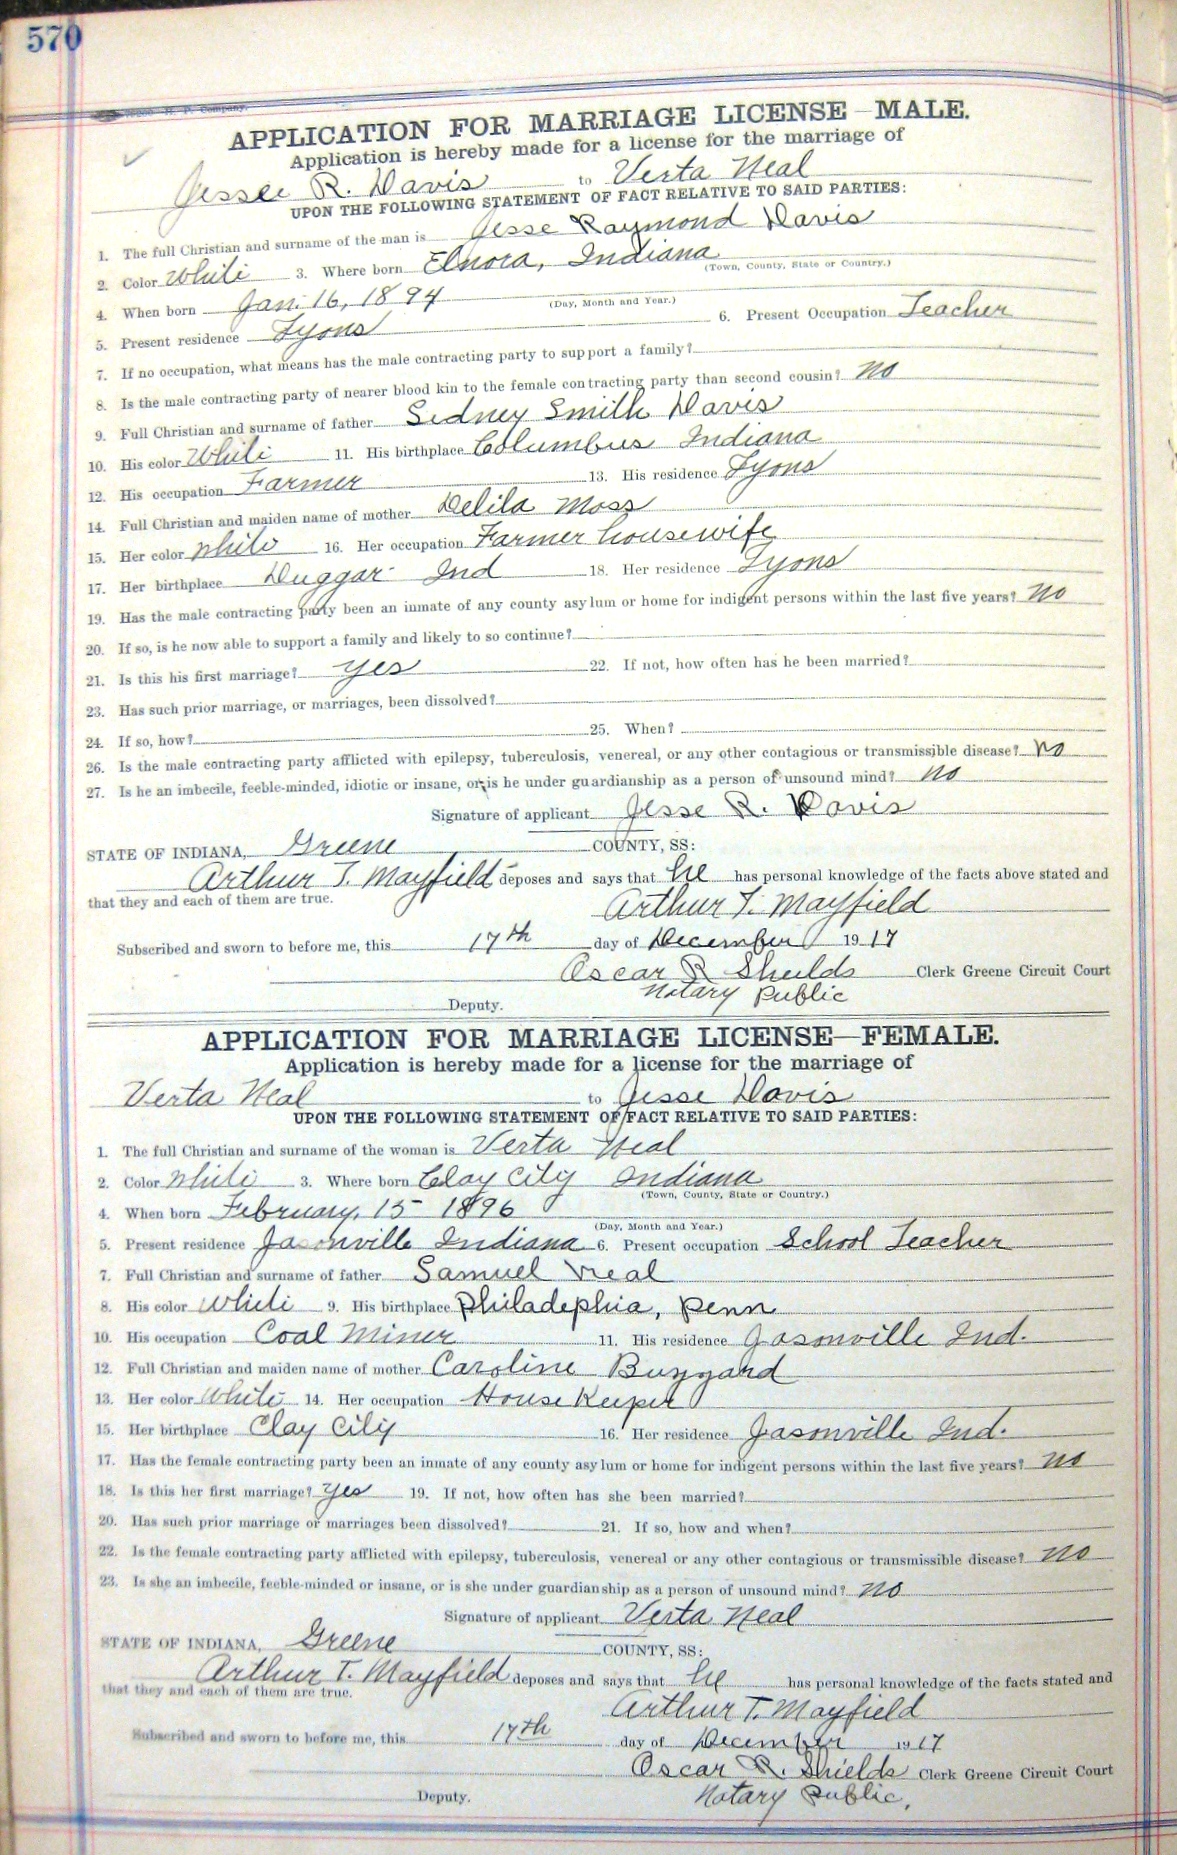 570
APPLICATION FOR MARRIAGE LICENSE—MALE.
Application is hereby made for a license for the marriage of
Jesse R. Davis to Verta Neal
UPON THE FOLLOWING STATEMENT OF FACT RELATIVE TO SAID PARTIES:
1. The full Christian and surname of the man is Jesse Raymond Davis
2. Color White 3. Where born Elnora, Indiana
(Town, County, State or Country.)
4. When born Jan. 16, 1894
(Day, Month and Year.)
5. Present residence Lyons 6. Present Occupation Teacher
7. If no occupation, what means has the male contracting party to support a family?
8. Is the male contracting party of nearer blood kin to the female contracting party than second cousin? no
9. Full Christian and surname of father Sidney Smith Davis
10. His color White 11. His birthplace Columbus Indiana
12. His occupation Farmer 13. His residence Lyons
14. Full Christian and maiden name of mother Delila Moss
15. Her color White 16. Her occupation Farmer housewife
17. Her birthplace Duggar Ind 18. Her residence Lyons
19. Has the male contracting party been an inmate of any county asylum or home for indigent persons within the last five years? no
20. If so, is he now able to support a family and likely to so continue?
21. Is this his first marriage? yes 22. If not, how often has he been married?
23. Has such prior marriage, or marriages, been dissolved?
24. If so, how? 25. When?
26. Is the male contracting party afflicted with epilepsy, tuberculosis, venereal, or any other contagious or transmissible disease? no
27. Is he an imbecile, feeble-minded, idiotic or insane, or is he under guardianship as a person of unsound mind? no
Signature of applicant Jesse R. Davis
STATE OF INDIANA, Greene COUNTY, SS:
Arthur T. Mayfield deposes and says that he has personal knowledge of the facts above stated and
that they and each of them are true.
Arthur T. Mayfield
Subscribed and sworn to before me, this 17th day of December 1917
Oscar R Shields Clerk Greene Circuit Court
Notary Public
Deputy.
APPLICATION FOR MARRIAGE LICENSE—FEMALE.
Application is hereby made for a license for the marriage of
Verta Neal to Jesse Davis
UPON THE FOLLOWING STATEMENT OF FACT RELATIVE TO SAID PARTIES:
1. The full Christian and surname of the woman is Verta Neal
2. Color White 3. Where born Clay City Indiana
(Town, County, State or Country.)
4. When born February, 15 1896
(Day, Month and Year.)
5. Present residence Jasonville Indiana 6. Present occupation School Teacher
7. Full Christian and surname of father Samuel Neal
8. His color White 9. His birthplace Philadephia, Penn
10. His occupation Coal Miner 11. His residence Jasonville Ind.
12. Full Christian and maiden name of mother Caroline Buzzard
13. Her color White 14. Her occupation House Keeper
15. Her birthplace Clay City 16. Her residence Jasonville Ind.
17. Has the female contracting party been an inmate of any county asylum or home for indigent persons within the last five years? no
18. Is this her first marriage? yes 19. If not, how often has she been married?
20. Has such prior marriage or marriages been dissolved? 21. If so, how and when?
22. Is the female contracting party afflicted with epilepsy, tuberculosis, venereal or any other contagious or transmissible disease? no
23. Is she an imbecile, feeble-minded or insane, or is she under guardianship as a person of unsound mind? no
Signature of applicant Verta Neal
STATE OF INDIANA, Greene COUNTY, SS:
Arthur T. Mayfield deposes and says that he has personal knowledge of the facts stated and
that they and each of them are true.
Arthur T. Mayfield
Subscribed and sworn to before me, this 17th day of December 1917
Oscar R. Shields Clerk Greene Circuit Court
Notary Public,
Deputy.